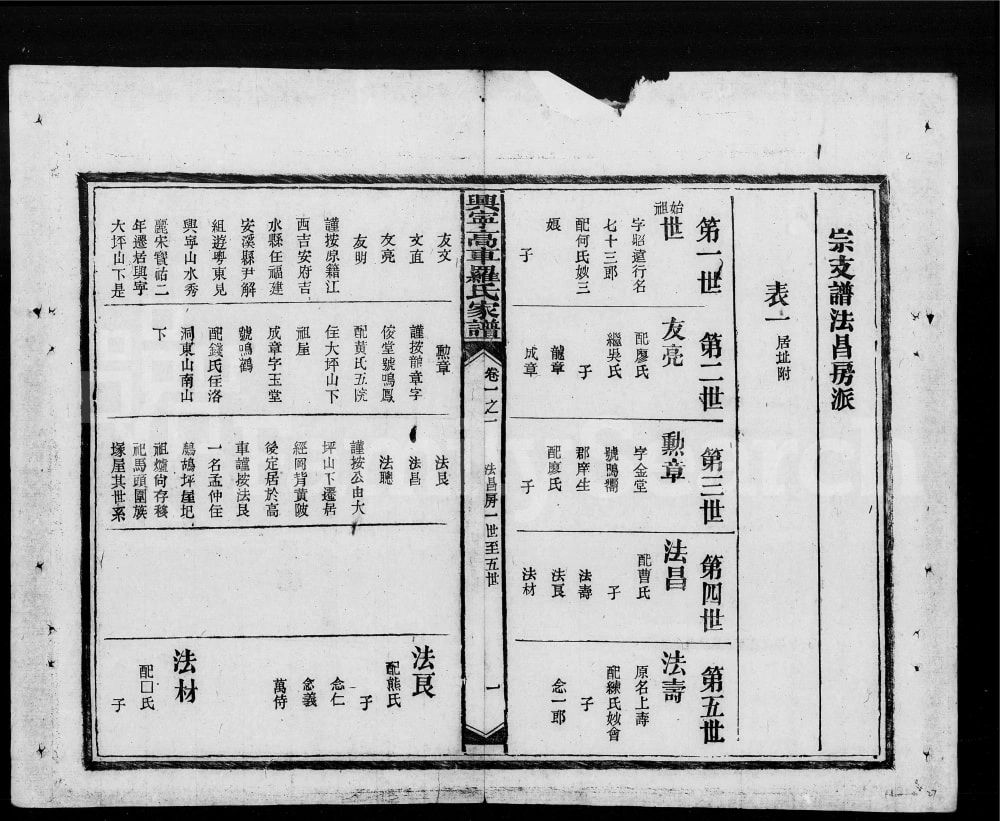 崇支譜法昌房派
表一 居址附
第一世
始祖
世
字昭遠行名
七十三郎
配何氏妙三
娘
子
第二世
友亮
配廖氏
繼吳氏
子
龍章
成章
第三世
勲章
字金堂
號鴨
郡庠生
配廖氏
子
第四世
法昌
配曹氏
子
法壽
法艮
法材
第五世
法壽
原名上壽
配練氏妙會
子
念一郎
興寧高車羅氏家譜
卷一之一
法昌房一世至五世
一
友文
文直
友亮
友明
謹按原籍江
西吉安府吉
水縣任福建
安溪縣尹解
組遊粵東見
興寧山水秀
麗宋寳祐二
年遷居興寧
大坪山下是
勲章
謹按龍章字
俊堂號鳴鳳
配黃氏五院
住大坪山下
祖屋
成章字玉堂
號鳴鶴
配錢氏住洛
洞東山南山
下
法艮
法昌
法聰
謹按公由大
坪山下遷居
經岡背黃陂
後定居於高
車謹按法艮
一名孟仲住
鷓鴣坪屋圯
祖爐尙存移
祀馬頭圍族
塚屋其世系
法艮
配熊氏
子
念仁
念義
萬侍
法材
配口氏
子